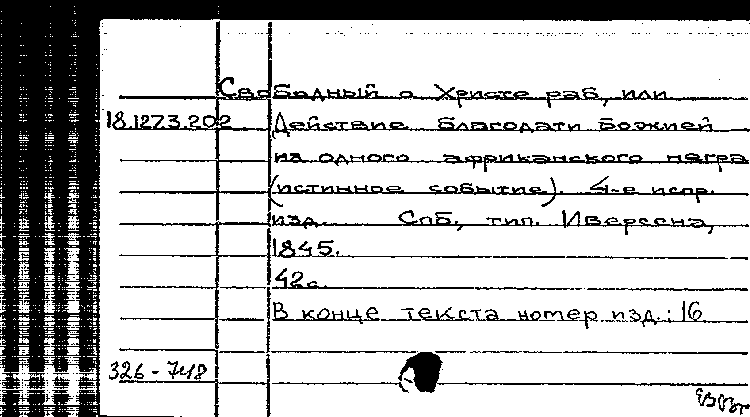 Свободный о Христе раб, или
18.127.3.202 Действие благодати божией
на одного африканского негра
(истинное событие). 4-е испр.
изд. Спб, тип. Иверсена,
1845.
42с.
В конце текста номер изд.: 16
326-748